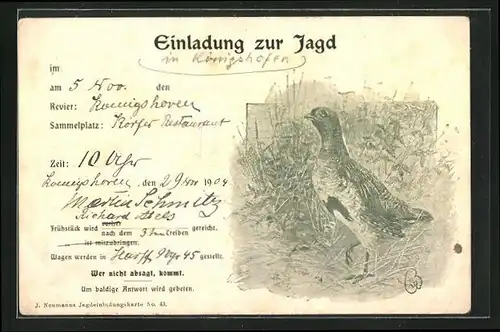 Einladung zur Jagd
in Königshofen
im
am 5 Nov. den
Revier: Koenigshoven
Sammelplatz: Restaurant
Zeit: 10 Uhr
Koenigshoven, den 2 Nov 1904
Martin Schmitz
Richard
Frühstück wird nach dem 3ten Treiben gereicht.
ist mitzubringen.
Wagen werden in Harff 9 Uhr 45 gestellt.
Wer nicht absagt, kommt.
Um baldige Antwort wird gebeten.
J. Neumanns Jagdeinladungskarte No. 43.